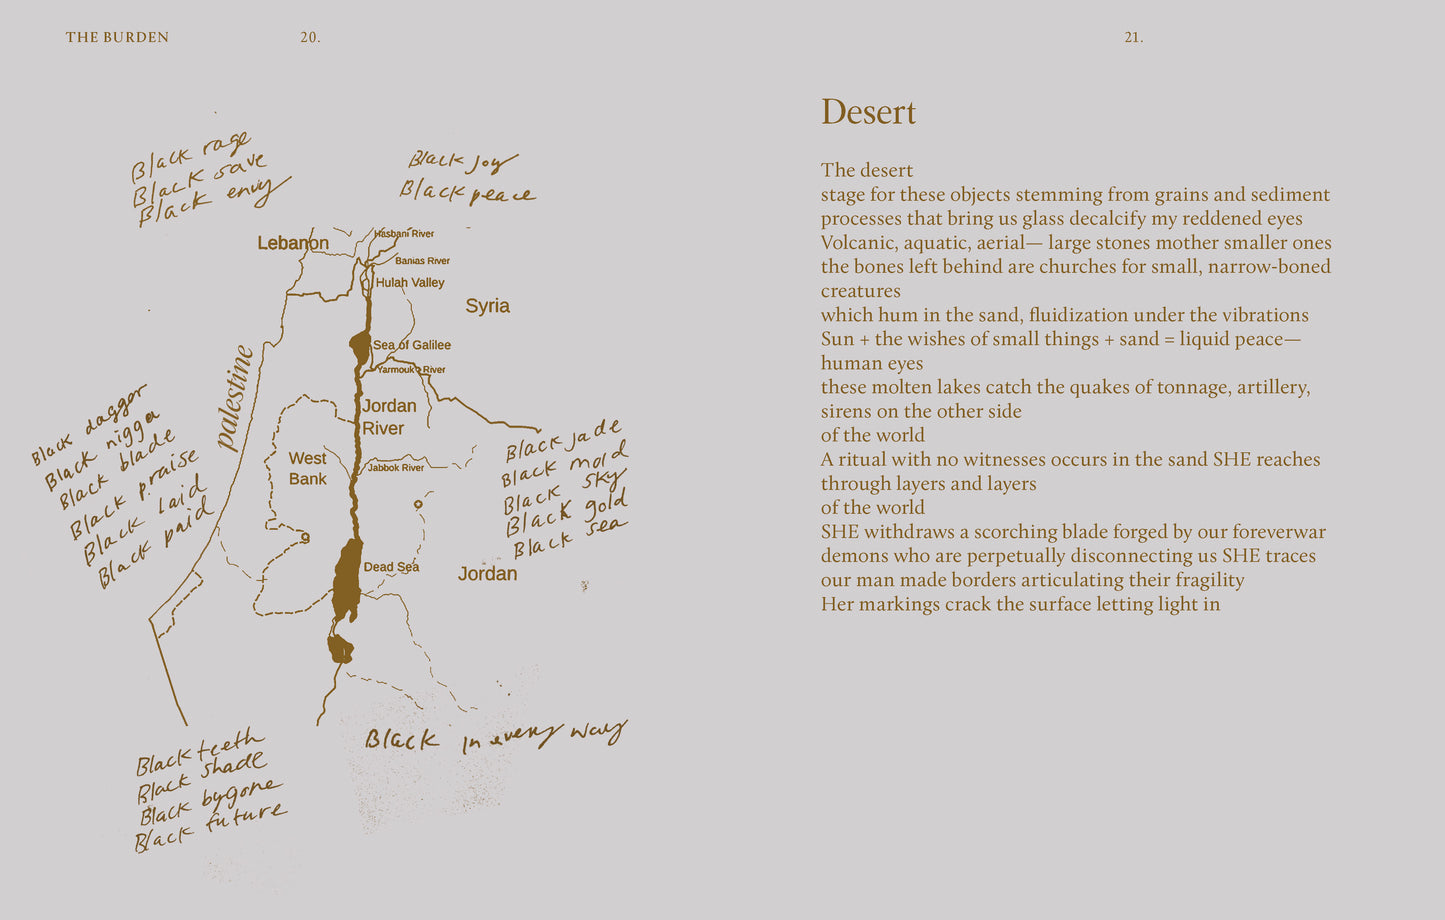 THE BURDEN
20.
21.
Black rage
Black save
Black envy
Black Joy
Black peace
Lebanon
Hasbani River
Banias River
Hulah Valley
Syria
Sea of Galilee
Yarmouk River
palestine
Jordan
River
West
Bank
Jabbok River
Dead Sea
Jordan
Black dagger
Black nigga
Black blade
Black praise
Black laid
Black paid
Black Jade
Black mold
Black sky
Black gold
Black sea
Black in every way
Black teeth
Black shade
Black bygone
Black future
Desert
The desert
stage for these objects stemming from grains and sediment
processes that bring us glass decalcify my reddened eyes
Volcanic, aquatic, aerial— large stones mother smaller ones
the bones left behind are churches for small, narrow-boned
creatures
which hum in the sand, fluidization under the vibrations
Sun + the wishes of small things + sand = liquid peace—
human eyes
these molten lakes catch the quakes of tonnage, artillery,
sirens on the other side
of the world
A ritual with no witnesses occurs in the sand SHE reaches
through layers and layers
of the world
SHE withdraws a scorching blade forged by our foreverwar
demons who are perpetually disconnecting us SHE traces
our man made borders articulating their fragility
Her markings crack the surface letting light in